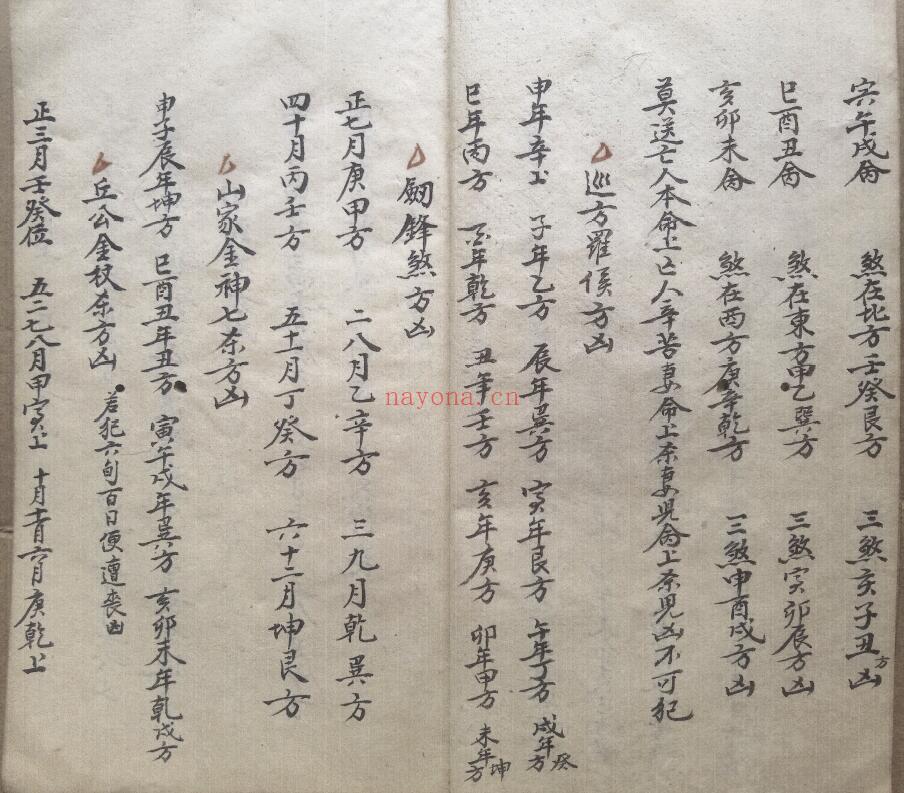 寅午戌命 煞在北方壬癸艮方 三煞亥子丑方凶
巳酉丑命 煞在東方甲乙巽方 三煞寅卯辰方凶
亥卯未命 煞在西方庚辛乾方 三煞申酉戌方凶
莫送亡人本命上亡人辛苦妻命上杀妻児命上杀児凶不可犯
巡方羅侯方凶
申年辛 子年乙方 辰年巽方 寅年艮方 午年丁方 戌年癸方
巳年丙方 酉年乾方 丑年壬方 亥年庚方 卯年甲方 未年坤方
劒鋒煞方凶
正七月庚甲方 二八月乙辛方 三九月乾巽方
四十月丙壬方 五十一月丁癸方 六十二月坤艮方
山家金神七杀方凶
申子辰年坤方 巳酉丑年丑方 寅午戌年巽方 亥卯未年乾戌方
丘公金杖杀方凶 若犯六旬百日便遭喪凶
正三月壬癸位 五二七八月甲寅上 十月十一月六月庚乾上
nayona.cn